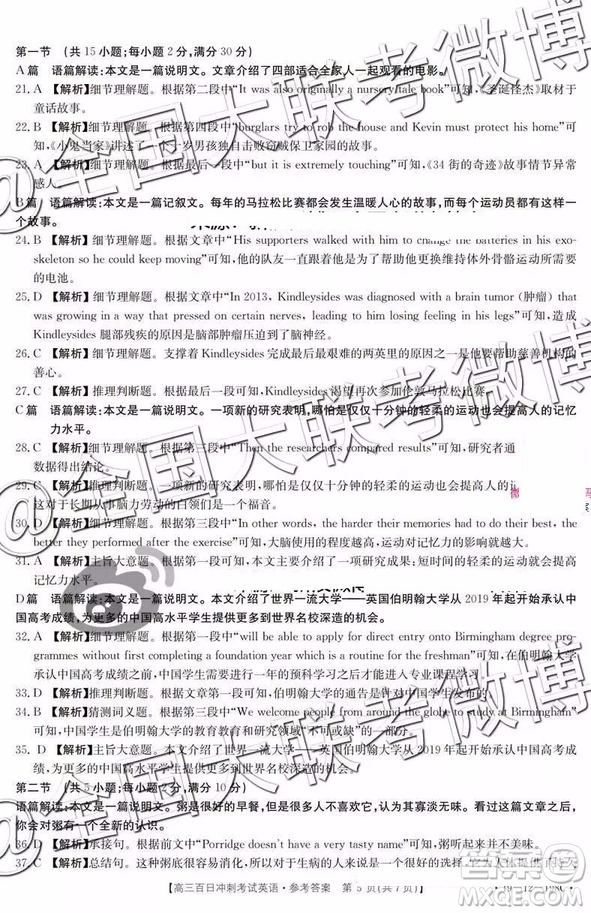 第一节 (共15小题;每小题2分,满分30分)
A篇 语篇解读:本文是一篇说明文。文章介绍了四部适合全家人一起观看的电影。
21. A 【解析】细节理解题。根据第二段中“It was also originally a nursery tale book”可知,《圣诞怪杰》取材于
童话故事。
22. B 【解析】细节理解题。根据第四段中“burglars try to rob the house and Kevin must protect his home”可
知,《小鬼当家》讲述了一个十一岁男孩独自击败窃贼保卫家园的故事。
23. A 【解析】细节理解题。根据最后一段中“but it is extremely touching”可知,《34街的奇迹》故事情节异常
感人。
B篇 语篇解读:本文是一篇记叙文。每年的马拉松比赛都会发生温暖人心的故事,而每个运动员都有
一个故事。
24. B 【解析】细节理解题。根据文章中“His supporters walked with him to change the batteries in his exo-
skeleton so he could keep moving”可知,一直有人陪伴着他,并为他更换能够支持体外骨骼运动所需要
的电池。
25. D 【解析】细节理解题。根据文章中“In 2013, Kindleysides was diagnosed with a brain tumor (肿瘤) that
was growing in a way that pressed on certain nerves, leading to him losing feeling in his legs”可知,造成
Kindleysides 腿部残疾的原因是脑部肿瘤压迫了脑神经。
26. C 【解析】细节理解题。支撑着 Kindleysides 完成最后最艰难的两英里的原因是,他希望能够帮助慈善机构的
善心。
27. C 【解析】推理判断题。根据最后一段可知,Kindleysides 渴望再次参加伦敦马拉松比赛。
C篇 语篇解读:本文是一篇说明文。一项新的研究表明,哪怕是仅仅十分钟的轻柔的运动也会提高人的记忆
力水平。
28. C 【解析】细节理解题。根据第三段中“Then the researchers compared results”可知,研究者通
数据得出结论。
29. C 【解析】推理判断题。一项新的研究表明,哪怕是仅仅十分钟的轻柔的运动也会提高人的
这对于长期从事脑力劳动的白领们是一个福音。
30. D 【解析】细节理解题。根据第三段中“In other words, the harder their memories had to do their best, the
better they performed after the exercise”可知,运动对记忆力的影响就越大。
31. A 【解析】主旨大意题。根据文章内容可知,本文主要介绍了一项研究成果:短时间的轻柔的运动能提高人的
记忆力水平。
D篇 语篇解读:本文是一篇说明文。本文介绍了世界一流大学——英国伯明翰大学从2019年起开始承认中
国高考成绩,为更多的中国高水平学生提供更多到世界名校深造的机会。
32. A 【解析】细节理解题。根据第一段中“will be able to apply for direct entry onto Birmingham degree pro-
grammes without first completing a foundation year”可知,在英国伯明翰大学承认
中国高考成绩之前,中国学生需要进行一年的预科学习之后才可以进行本科学习。
33. D 【解析】推理判断题。根据文章内容可知,伯明翰大学的这一声明是针对中国发布的。
34. B 【解析】猜测词义题。根据第三段中“We welcome people from around the globe to study at Birmingham”
可知,中国学生是伯明翰大学教育教学的“不可或缺的”一部分。
35. D 【解析】主旨大意题。文章介绍了世界一流大学——英国伯明翰大学从2019年起开始承认中国高考成绩,
为更多的中国高水平学生提供更多到世界名校深造的机会。
第二节 (共5小题;每小题2分,满分10分)
语篇解读:本文是一篇说明文。粥是很好的早餐,但是很多人不喜欢它,认为其过于平淡无味。看完这篇文章,你
会对粥有一个全新的认识。
36. D 【解析】承接句。根据上文中“Porridge doesn't have a very nice taste”可知,粥听起来并不美味。
37. C 【解析】总结句。这种燕麦粥不仅使人感觉到饱,而且对身体健康还有很多好处。
【高三百日冲刺考试英语·参考答案 第5页(共7页)】
·19-12-198C·
@全国大联考微博
@全国大联考微博
@全国大联考微博